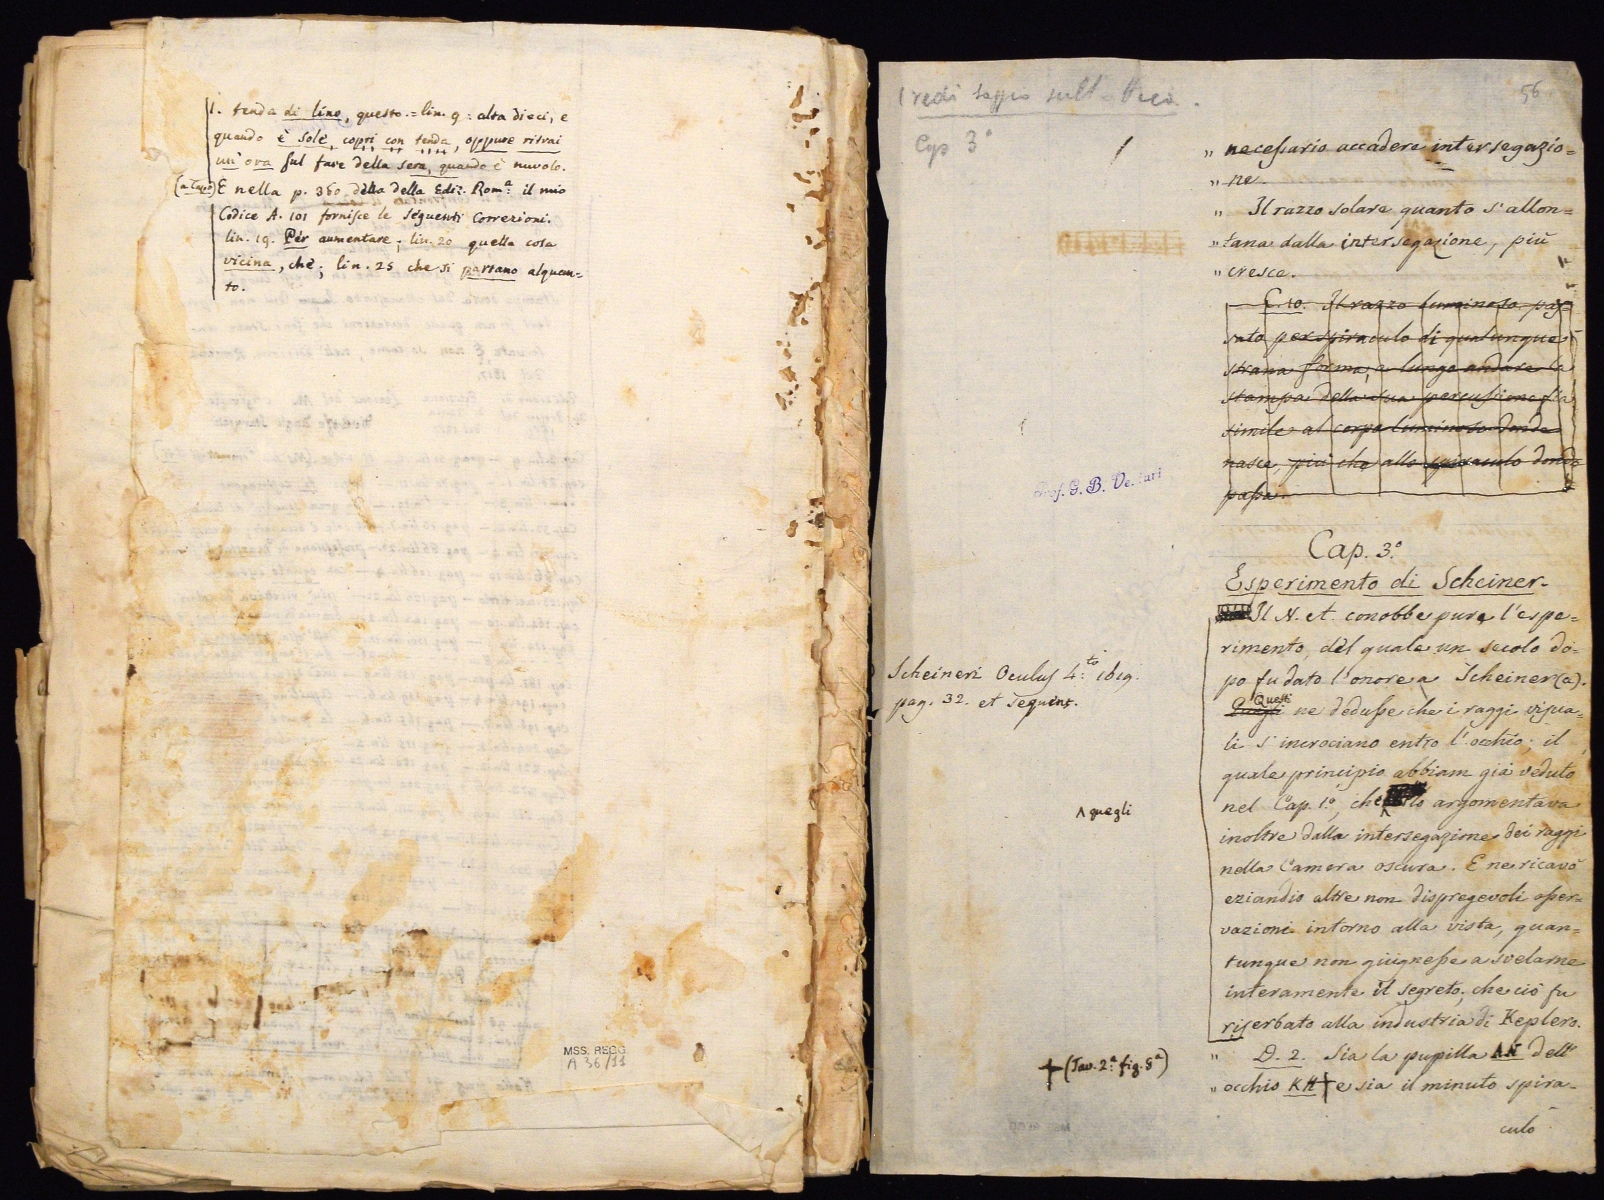 1. tenda di lino, questo = lin. 9 : alta dieci, e
quando è sole, copri con tenda, oppure ritrai
un' ora sul fare della sera, quando è nuvolo.
E nella p. 360 della Ediz. Rom.a il mio
Codice A. 101 fornisce le seguenti Correzioni.
lin. 19. Per aumentare; lin. 20 quella cosa
vicina, che; lin. 25 che si partano alquan-
to.
MSS. REGG
A 36/11
vedi saggio sull'
Cap 3°
56
" necessario accadere intersegazio=
" ne.
" Il razzo solare quanto s'allon=
" tana dalla intersegazione, più
" cresce.
E. 10. Il razzo luminoso pas=
sato per spiraculo di qualunque
strana forma, a lungo andare la
stampa della sua percussione fia
simile al corpo luminoso donde
nasce, più che allo spiraculo donde
passa.
Prof. G. B. Venturi
Cap. 3.°
Esperimento di Scheiner.
Il N. A. conobbe pure l'espe=
rimento, del quale un secolo do=
po fu dato l'onore a Scheiner (a).
Scheineri Oculus 4.to 1619.
pag. 32. et sequent.
Questi
Quegli ne dedusse che i raggi visua=
li s'incrociano entro l'occhio; il
quale principio abbiam già veduto
nel Cap. 1.°, che lo argomentava
^ quegli
inoltre dalla intersegazione dei raggi
nella Camera oscura. E ne ricavò
eziandio altre non dispregevoli osser=
vazioni intorno alla vista, quan=
tunque non giugnesse a svelarne
interamente il segreto; che ciò fu
riserbato alla industria di Keplero.
" D. 2. Sia la pupilla AN dell'
" occhio KH + e sia il minuto spira-
+ (Tav. 2.a fig. 8a)
culo